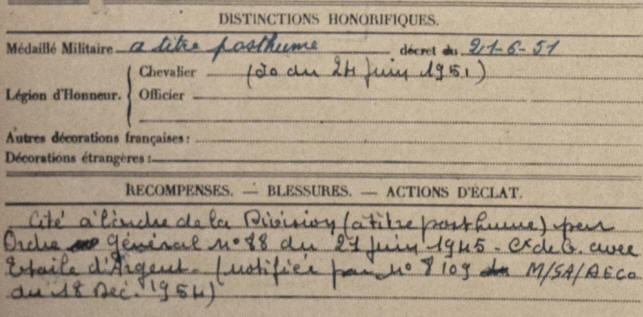 DISTINCTIONS HONORIFIQUES.
Médaillé Militaire a titre posthume décret du 21-6-51
Chevalier (Jo du 24 juin 1951)
Légion d'Honneur. Officier
Autres décorations françaises :
Décorations étrangères :
RECOMPENSES. — BLESSURES. — ACTIONS D'ÉCLAT.
Cité à l'ordre de la Division (a titre posthume) par
Ordre Général N° 88 du 27 juin 1945 - Cx de G. avec
Etoile d'Argent. (notifiée par N° 8109 M/SA/AECo
du 18 Dec. 1954)